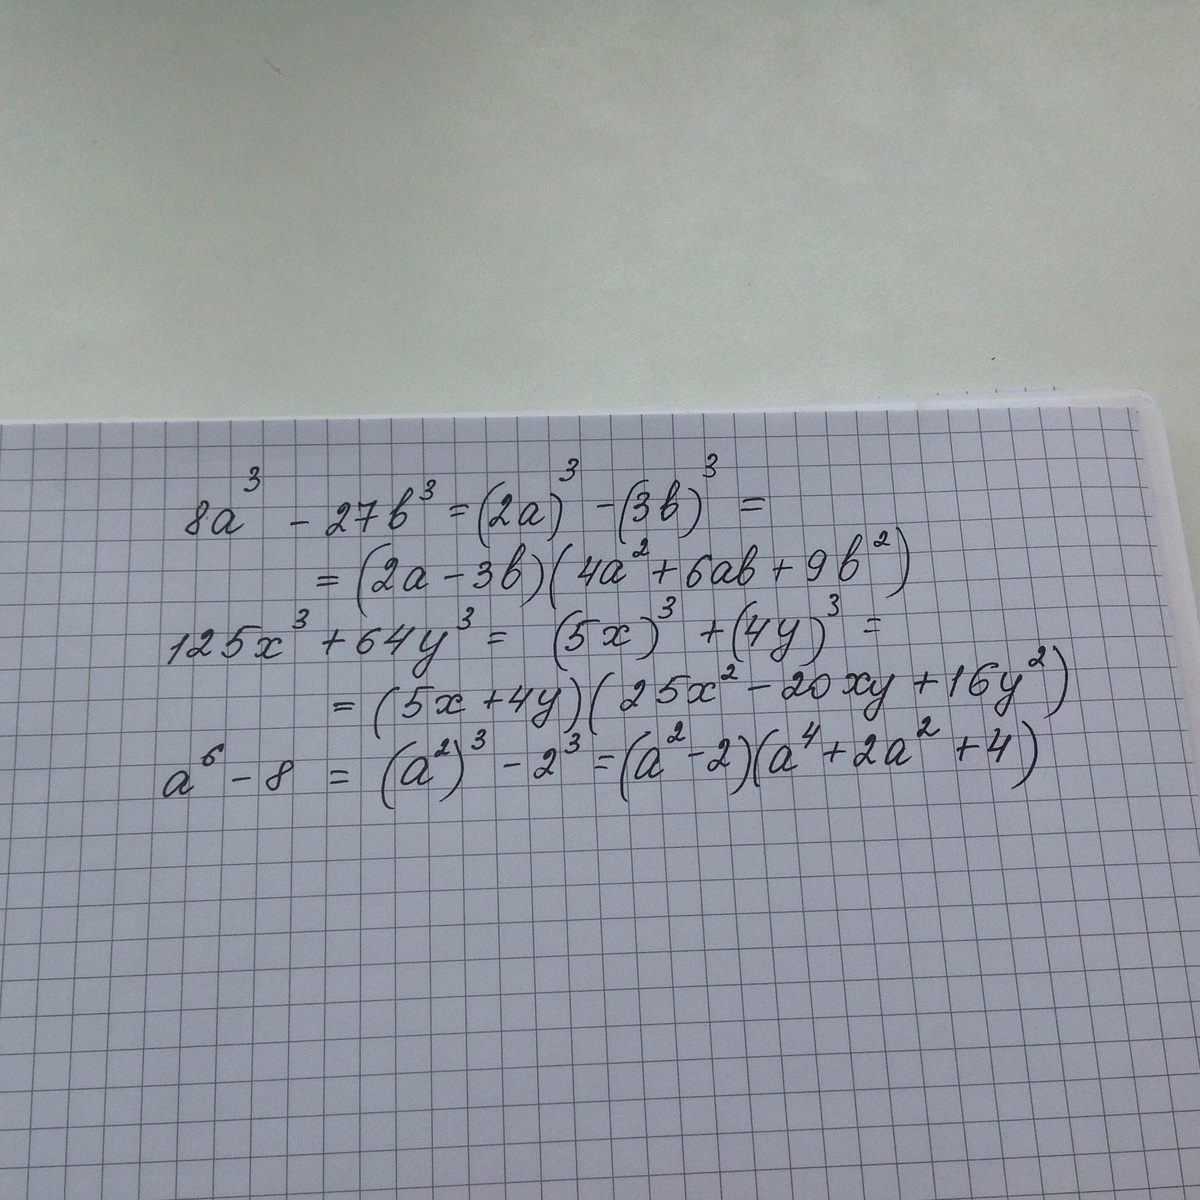 8a³ - 27b³ = (2a)³ - (3b)³ =
= (2a - 3b)(4a² + 6ab + 9b²)
125x³ + 64y³ = (5x)³ + (4y)³ =
= (5x + 4y)(25x² - 20xy + 16y²)
a⁶ - 8 = (a²)³ - 2³ = (a² - 2)(a⁴ + 2a² + 4)